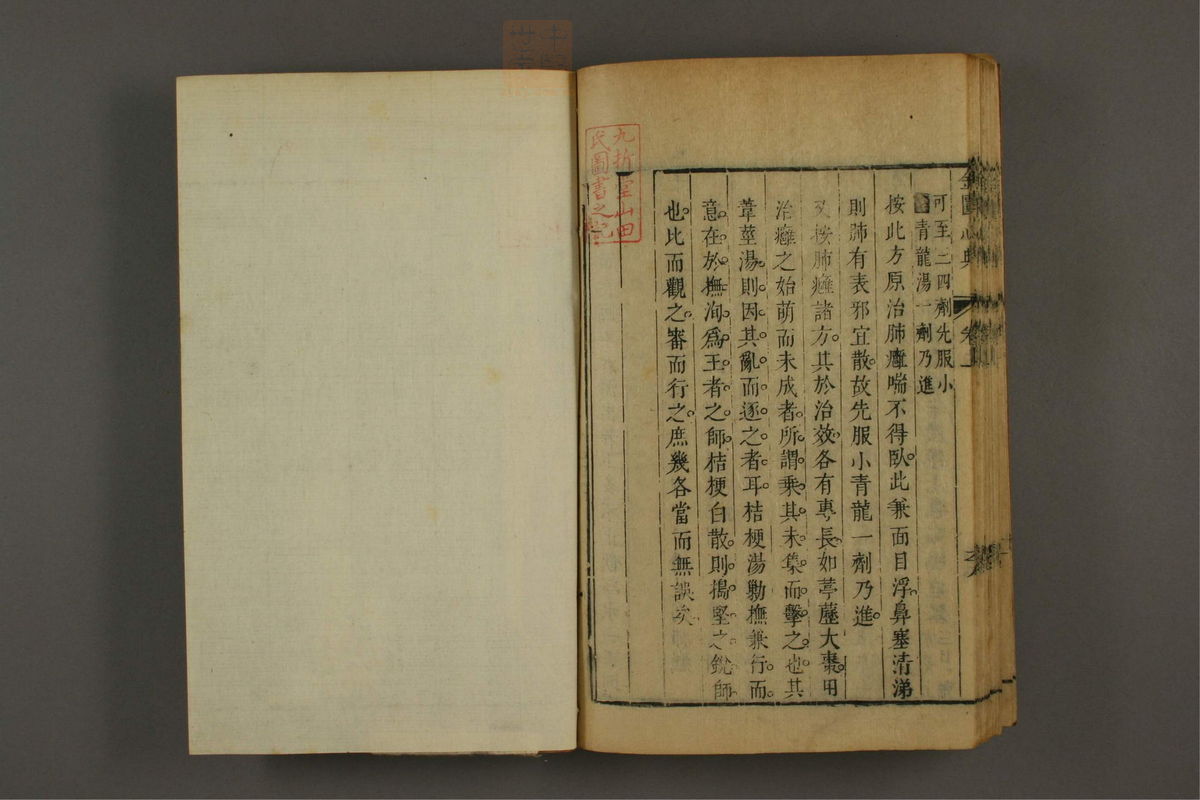 金匱心典 卷上
可至三四劑先服小
青龍湯一劑乃進
按此方原治肺癰喘不得臥此兼面目浮鼻塞清涕
則肺有表邪宜散故先服小青龍一劑乃進
又按肺癰諸方其於治效各有專長如葶藶大棗用
治癰之始萌而未成者所謂乘其未集而擊之也其
葦莖湯則因其亂而逐之者耳桔梗湯勦撫兼行而
意在於撫洵為王者之師桔梗白散則搗堅之銳師
也比而觀之審而行之庶幾各當而無誤矣
九折堂山田
氏圖書之記